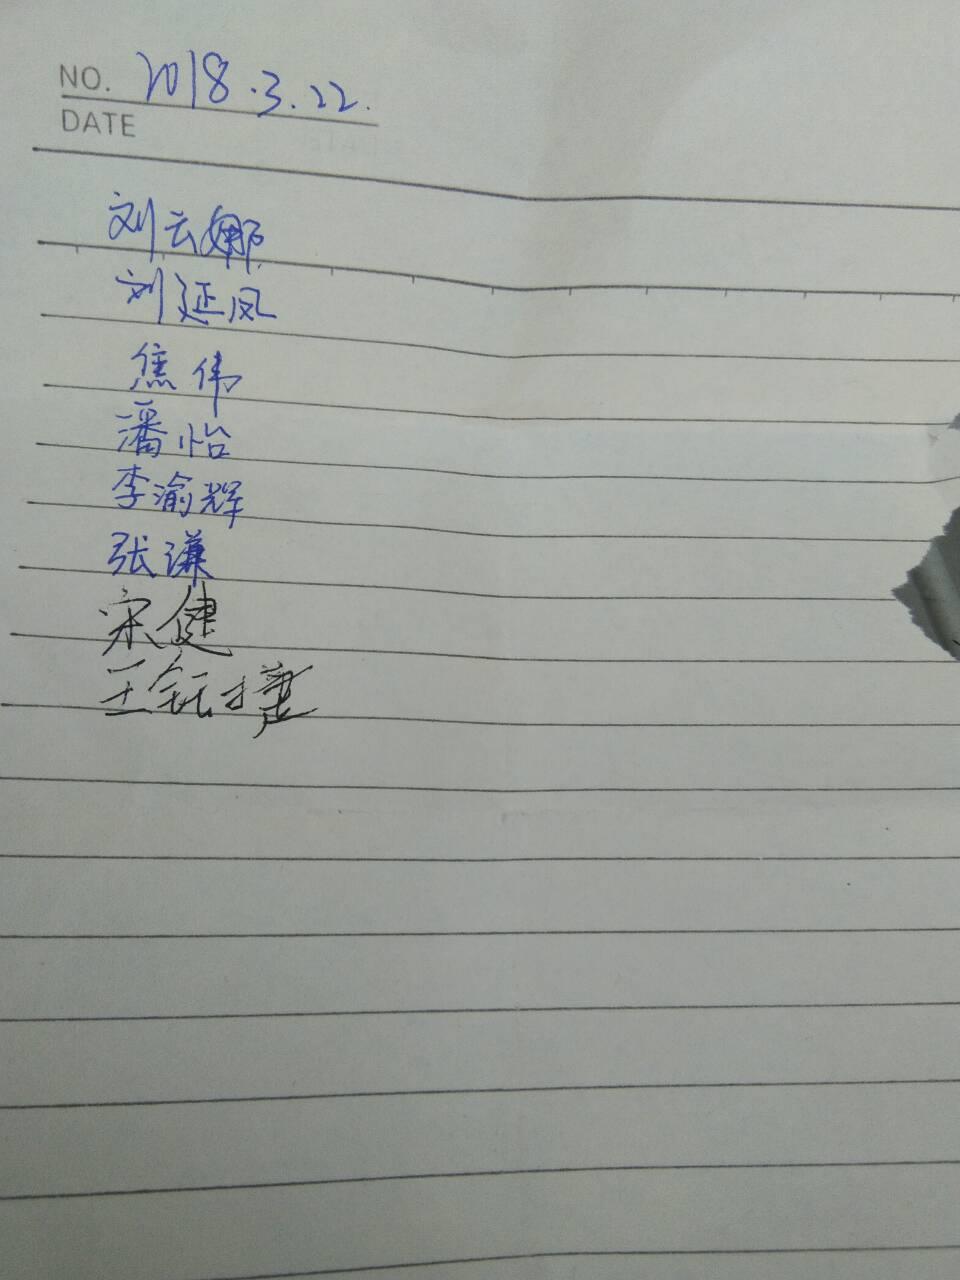 NO. 2018.3.22.
DATE
刘云娜
刘延凤
焦伟
潘怡
李渝辉
张谦
宋健
王钰捷